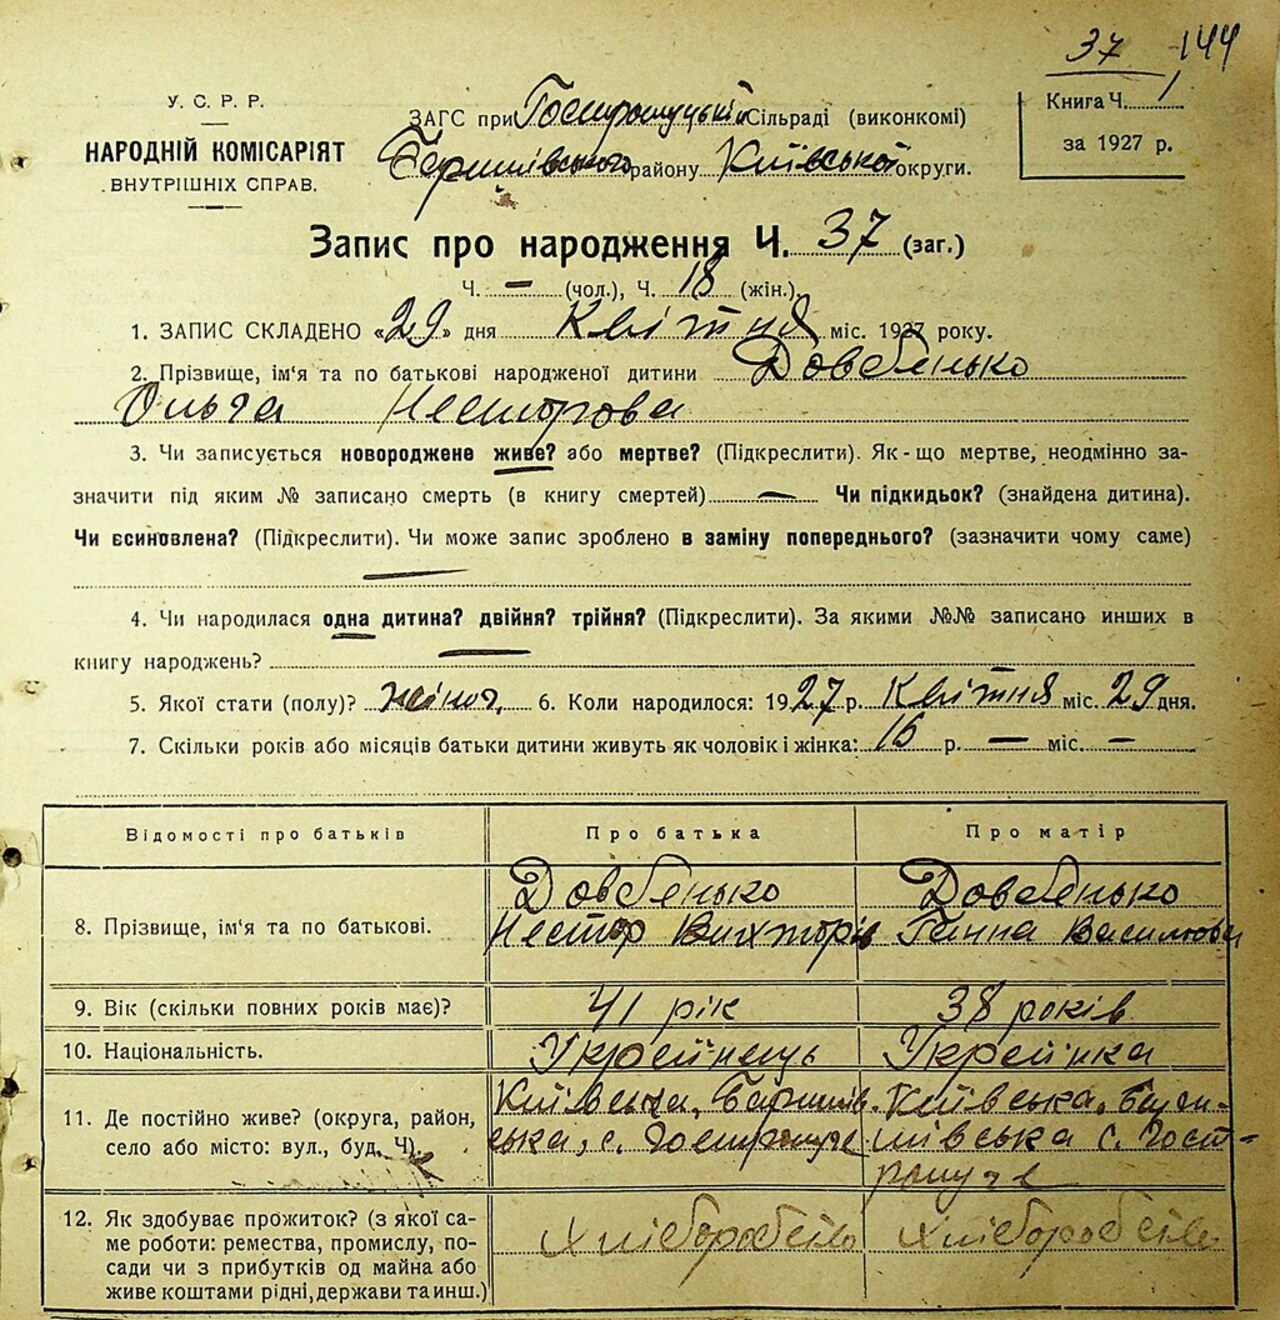 37 144
У. С. Р. Р.
НАРОДНІЙ КОМІСАРІЯТ
ВНУТРІШНІХ СПРАВ.
ЗАГС при Сільраді (виконкомі)
району Київської округи.
Книга Ч. 1
за 1927 р.
Запис про народження Ч. 37 (заг.)
Ч. — (чол.), Ч. 18 (жін.).
1. ЗАПИС СКЛАДЕНО «29» дня Квітня міс. 1927 року.
2. Прізвище, ім'я та по батькові народженої дитини Довбенько
Ольга Несторова
3. Чи записується новороджене живе? або мертве? (Підкреслити). Як-що мертве, неодмінно за-
значити під яким № записано смерть (в книгу смертей) — Чи підкидьок? (знайдена дитина).
Чи всиновлена? (Підкреслити). Чи може запис зроблено в заміну попереднього? (зазначити чому саме)
—
4. Чи народилася одна дитина? двійня? трійня? (Підкреслити). За якими №№ записано инших в
книгу народжень? —
5. Якої стати (полу)? жіноч. 6. Коли народилося: 1927 р. Квітня міс. 29 дня.
7. Скільки років або місяців батьки дитини живуть як чоловік і жінка: 16 р. — міс. —
Відомості про батьків
Про батька
Про матір
8. Прізвище, ім'я та по батькові.
Довбенько
Нестор Вихторів
Довбенько
Ганна Василова
9. Вік (скільки повних років має)?
41 рік
38 років
10. Національність.
Украйінець
Украйінка
11. Де постійно живе? (округа, район,
село або місто: вул., буд. Ч).
Київська,
ська, с.
Київська,
шівська с. Гост-
12. Як здобуває прожиток? (з якої са-
ме роботи: ремества, промислу, по-
сади чи з прибутків од майна або
живе коштами рідні, держави та инш.)